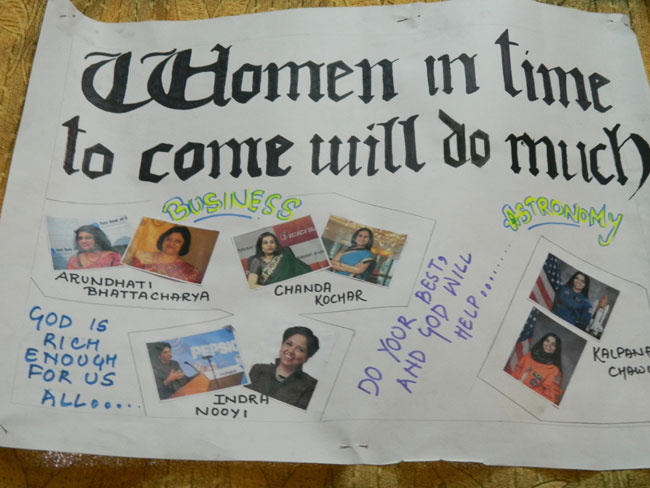 Women in time
to come will do much
BUSINESS
ASTRONOMY
ARUNDHATI
BHATTACHARYA
CHANDA
KOCHAR
GOD IS
RICH
ENOUGH
FOR US
ALL.....
INDRA
NOOYI
PEPSI
DO YOUR BEST,
AND GOD WILL
HELP.......
KALPANA
CHAW